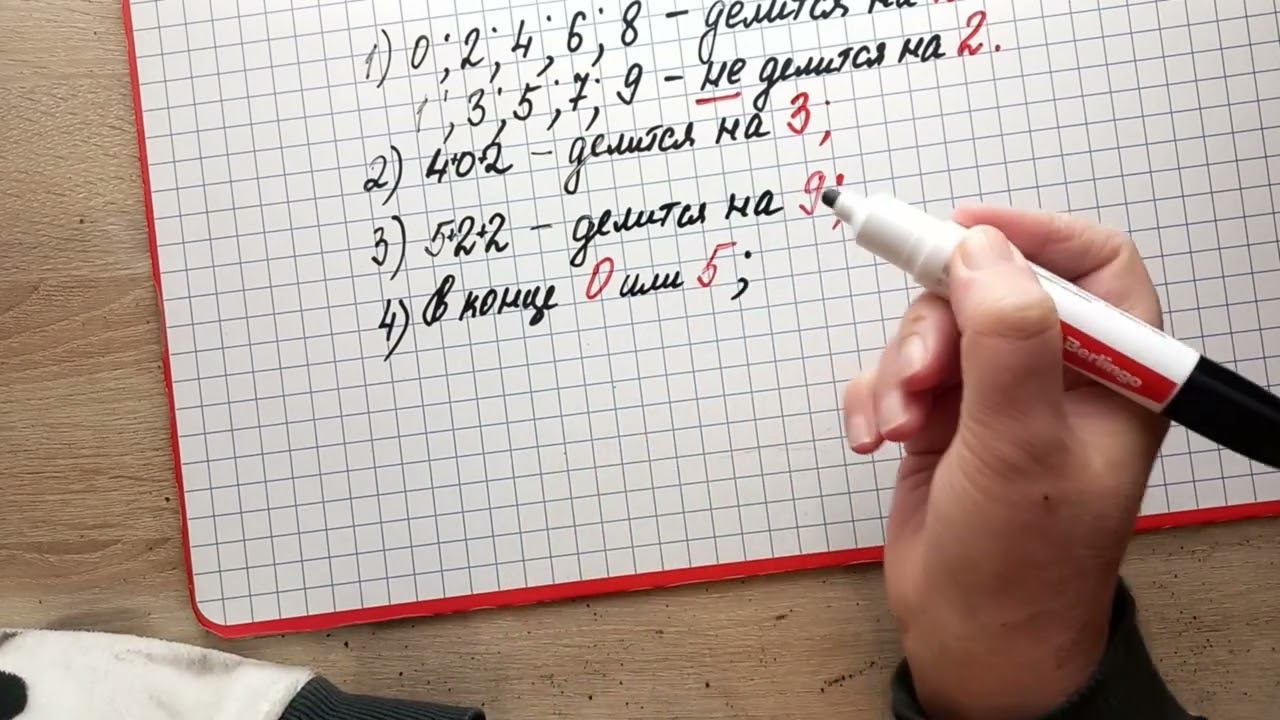 1) 0; 2; 4; 6; 8 – делится на
1; 3; 5; 7; 9 – не делится на 2.
2) 4+0+2 – делится на 3;
3) 5+2+2 – делится на 9;
4) в конце 0 или 5;
Berlingo